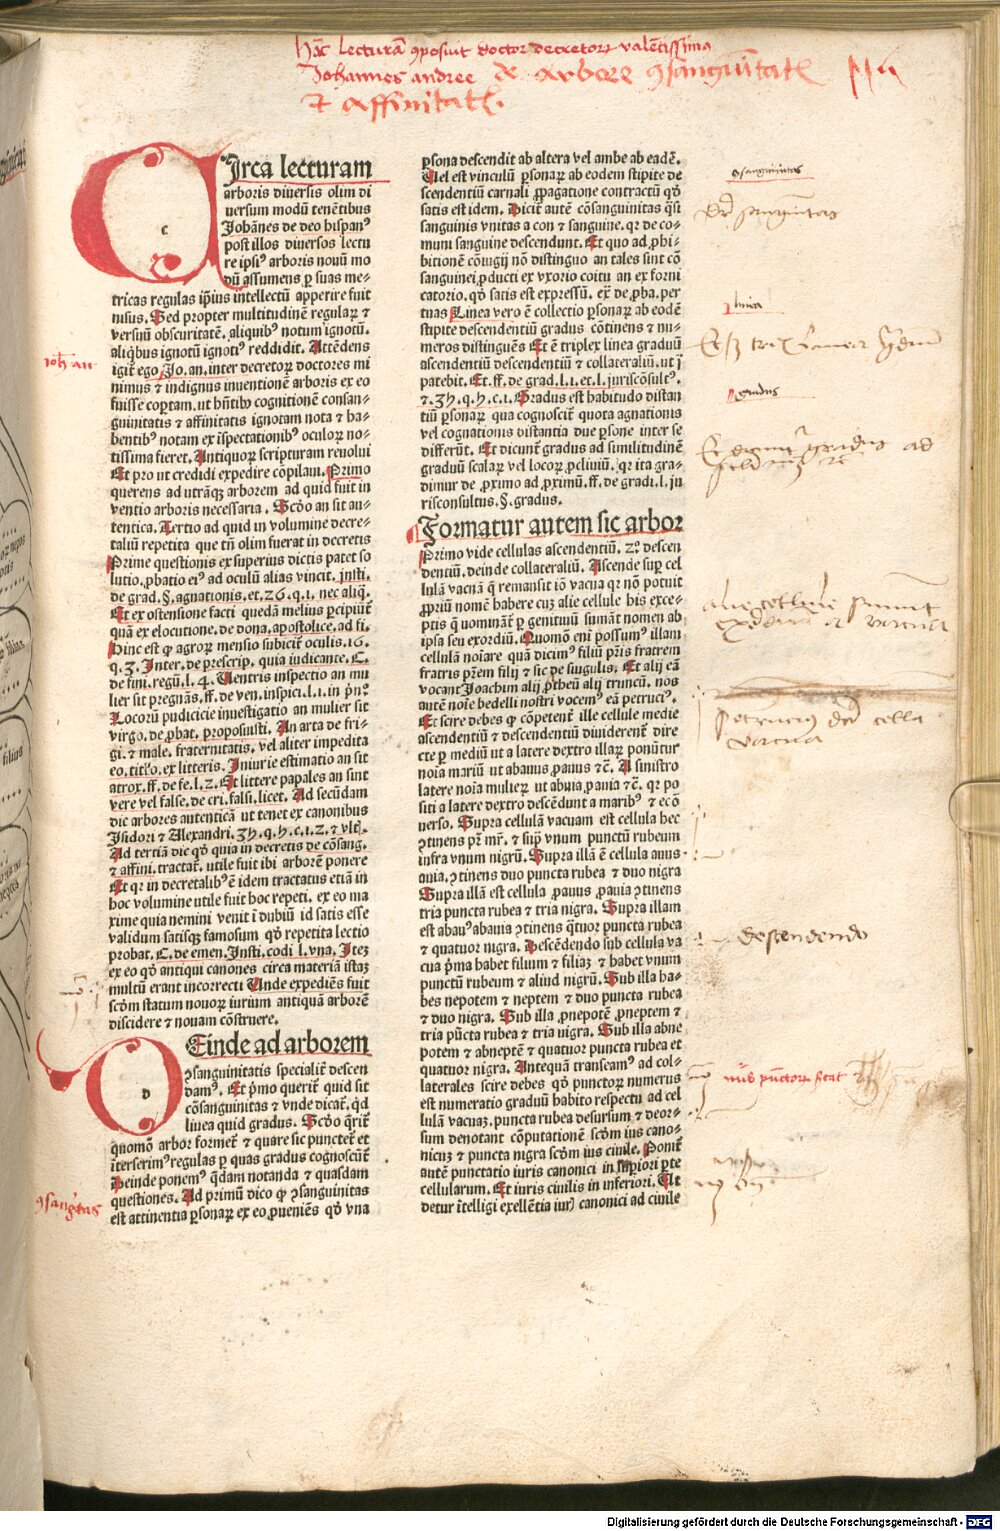 hac lecturā ꝯposuit doctor decretorꝝ valētissimꝰ
Johannes andree de arbore ꝯsanguītatꝭ
et affinitatꝭ.
CIrca lecturam
arboris diuersis olim di
uersum modū tenētibus
Johānes de deo hispanꝰ
post illos diuersos lectu
re ipsiꝰ arboris nouū mo
dū assumens ꝑ suas me⸗
tricas regulas ip̄ius intellectū apperire fuit
nisus. Sed propter multitudinē regularꝝ ⁊
versuū obscuritatē. aliquibꝰ notum ignotū.
aliq̄bus ignotū ignotiꝰ reddidit. Attēdens
igit̄ ego Jo. an. inter decretorꝝ doctores mi
nimus ⁊ indignus inuentionē arboris ex eo
fuisse coꝑtam. ut hn̄tibꝰ cognitionē consan⸗
guinitatis ⁊ affinitatis ignotam nota ⁊ ha⸗
bentibꝰ notam ex īspectationibꝰ oculorꝝ no⸗
tissima fieret. Antiquorꝝ scripturam reuolui
Et pro ut credidi expedire cōpilaui. Primo
querens ad utrāqꝫ arborem ad quid fuit in
ventio arboris necessaria. Scd̄o an sit au⸗
tentica. Tertio ad quid in volumine decre⸗
taliū repetita que tn̄ olim fuerat in decretis
Prime questionis ex superius dictis patet so
lutio. ꝓbatio eiꝰ ad oculū alias vincit. insti.
de grad. §. agnationis. et. 26. q. i. nec aliq̄.
Et ex ostensione facti quedā melius ꝑcipiūt̄
quā ex elocutione. de dona. apostolice. ad fi.
Hinc est ꝙ agrorꝝ mensio subicit̄ oculis. 16.
q. 3. Inter. de prescrip. quia iudicante. C.
de fini. regū. l. 4. Uentris inspectio an mu
lier sit pregnās. ff. de ven. inspici. l. i. in p̄nᵒ
Locorū pudicicie inuestigatio an mulier sit
virgo. de ꝓbat. proposuisti. An arta de fri⸗
gi. ⁊ male. fraternitatis. vel aliter impedita
eo. titꝉo. ex litteris. Iniurie estimatio an sit
atrox. ff. de fe. l. 2. Et littere papales an sint
vere vel false. de cri. falsi. licet. Ad secūdam
dic arbores autenticā ut tenet ex canonibus
Isidori ⁊ Alexandri. 35. q. 5. c. i. 2. ⁊ vlt̄.
Ad tertiā dic qđ quia in decretis de cōsang.
⁊ affini. tractat̄. utile fuit ibi arborē ponere
Et qr in decretalibꝰ ē idem tractatus etiā in
hoc volumine utile fuit hoc repeti. ex eo ma
xime quia nemini venit ī dubiū id satis esse
validum satisqꝫ famosum qđ repetita lectio
probat. C. de emen. Insti. codi l. vna. Iteꝫ
ex eo qđ antiqui canones circa materiā istaꝫ
multū erant incorrecti Unde expediēs fuit
scd̄m statum nouorꝝ iurium antiquā arborē
discidere ⁊ nouam cōstruere.
DEinde ad arborem
ꝯsanguinitatis specialit̄ descen
damꝰ. Et p̄mo querit̄ quid sit
cōsanguinitas ⁊ vnde dicat̄. qđ
linea quid gradus. Scd̄o q̄rit̄
quomō arbor formet̄ ⁊ quare sic punctet̄ et
īterserimꝰ regulas ꝑ quas gradus cognoscūt̄
Deinde ponemꝰ q̄dam notanda ⁊ quasdam
questiones. Ad primū dico ꝙ ꝯsanguinitas
est attinentia ꝑsonarꝝ ex eo ꝓueniēs qđ vna
ꝑsona descendit ab altera vel ambe ab eadē.
Uel est vinculū ꝑsonarꝝ ab eodem stipite de
scendentiū carnali ꝓpagatione contractū qđ
satis est idem. Dicit̄ autē cōsanguinitas q̄si
sanguinis vnitas a con ⁊ sanguine. qr de co⸗
muni sanguine descendunt. Et quo ad ꝓhi⸗
bitionē coniugij nō distinguo an tales sint cō
sanguinei ꝓducti ex vxorio coitu an ex forni
catorio. qđ satis est expressū. ex̄ de ꝓba. per
tuas Linea vero ē collectio ꝑsonarꝝ ab eodē
stipite descendentiū gradus cōtinens ⁊ nu⸗
meros distinguēs Et ē triplex linea graduū
ascendentiū descendentiū ⁊ collateraliū. ut ī
patebit. Et. ff. de grad. l. i. et. l. iurisconsultꝰ.
⁊. 35. q. 5. c. i. Gradus est habitudo distan
tiū ꝑsonarꝝ qua cognoscit̄ quota agnationis
vel cognationis distantia due ꝑsone inter se
differūt. Et dicunt̄ gradus ad similitudinē
graduū scalarꝝ vel locorꝝ ꝓcliuiū. qr ita gra⸗
dimur de ꝓximo ad ꝓximū. ff. de gradi. l. iu
risconsultus. §. gradus.
Formatur autem sic arbor
Primo vide cellulas ascendentiū. 2ᵒ descen
dentiū. deinde collateraliū. Ascende suꝑ cel
lulā vacuā q̄ remansit iō vacua qr nō potuit
ꝓpriū nomē habere cuꝫ alie cellule his exce⸗
ptis q̄ uominān̄t ꝑ genituū sumāt nomen ab
ipsa seu exordiū. Quomō eni possumꝰ illam
cellulā noīare quā dicimꝰ filiū pr̄is fratrem
fratris pr̄em filij ⁊ sic de singulis. Et alij eā
vocant Joachim alij ꝓtheū alij truncū. nos
autē noīe bedelli nostri vocemꝰ eā petruciꝰ.
Et scire debes ꝙ cōpetent̄ ille cellule medie
ascendentiū ⁊ descendentiū diuiderent̄ dire
cte ꝑ mediū ut a latere dextro illarꝝ ponūtur
noīa mariū ut abauus ꝓauus ⁊c̄. A sinistro
latere noīa mulierꝝ ut abuia ꝓauia ⁊c̄. qr po
siti a latere dextro descēdunt a maribꝰ ⁊ ecō
uerso. Supra cellulā vacuam est cellula hec
ꝯtinens pr̄. mr̄. ⁊ suꝑ vnum punctū rubeum
infra vnum nigrū. Supra illā ē cellula auus
auia. ꝯtinens duo puncta rubea ⁊ duo nigra
Supra illā est cellula ꝓauus ꝓauia ꝯtinens
tria puncta rubea ⁊ tria nigra. Supra illam
est abauꝰ abauia ꝯtinens q̄tuor puncta rubea
⁊ quatuor nigra. Descēdendo sub cellula va
cua p̄ma habet filium ⁊ filiaꝫ ⁊ habet vnum
punctū rubeum ⁊ aliud nigrū. Sub illa ha⸗
bes nepotem ⁊ neptem ⁊ duo puncta rubea
⁊ duo nigra. Sub illa ꝓnepotē ꝓneptem ⁊
tria pūcta rubea ⁊ tria nigra. Sub illa abne
potem ⁊ abneptē ⁊ quatuor puncta rubea et
quatuor nigra. Antequā transeamꝰ ad col⸗
laterales scire debes qđ punctorꝝ numerus
est numeratio graduū habito respectu ad cel
lulā vacuaꝫ. puncta rubea desursum ⁊ deor⸗
sum denotant cōputationē scd̄m ius cano⸗
nicuꝫ ⁊ puncta nigra scd̄m ius ciuile. Ponit̄
autē punctatio iuris canonici in suꝑiori ꝑte
cellularum. Et iuris ciuilis in inferiori. Ut
detur īteligi exellētia iurꝭ canonici ad ciuile
ioh an
ꝯsangtas
ꝯsanguinitas
linia
gradus
descendendo
nūs punctorꝝ
Digitalisierung gefördert durch die Deutsche Forschungsgemeinschaft - DFG